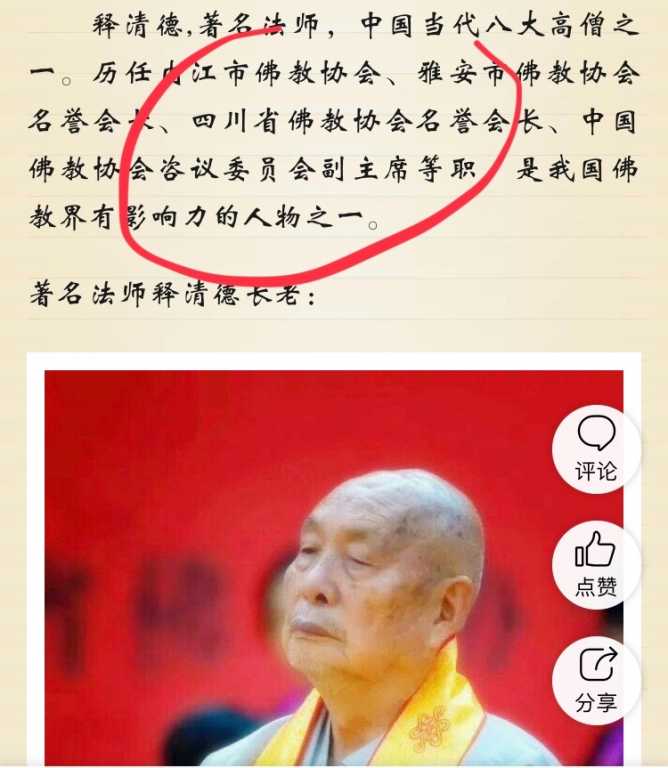 释清德,著名法师，中国当代八大高僧之
一。历任内江市佛教协会、雅安市佛教协会
名誉会长、四川省佛教协会名誉会长、中国
佛教协会咨议委员会副主席等职　是我国佛
教界有影响力的人物之一。
著名法师释清德长老：
评论
点赞
分享